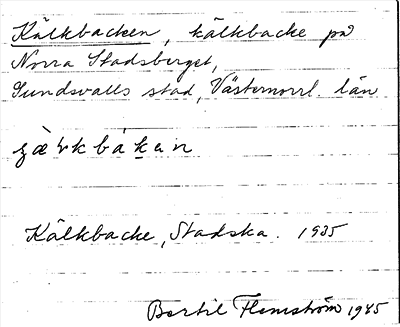 Kälkbacken, kälkbacke på
Norra Stadsberget,
Sundsvalls stad, Västernorrl. län
Kälkbacke, Stadska. 1935
Bertil Flemström 1985